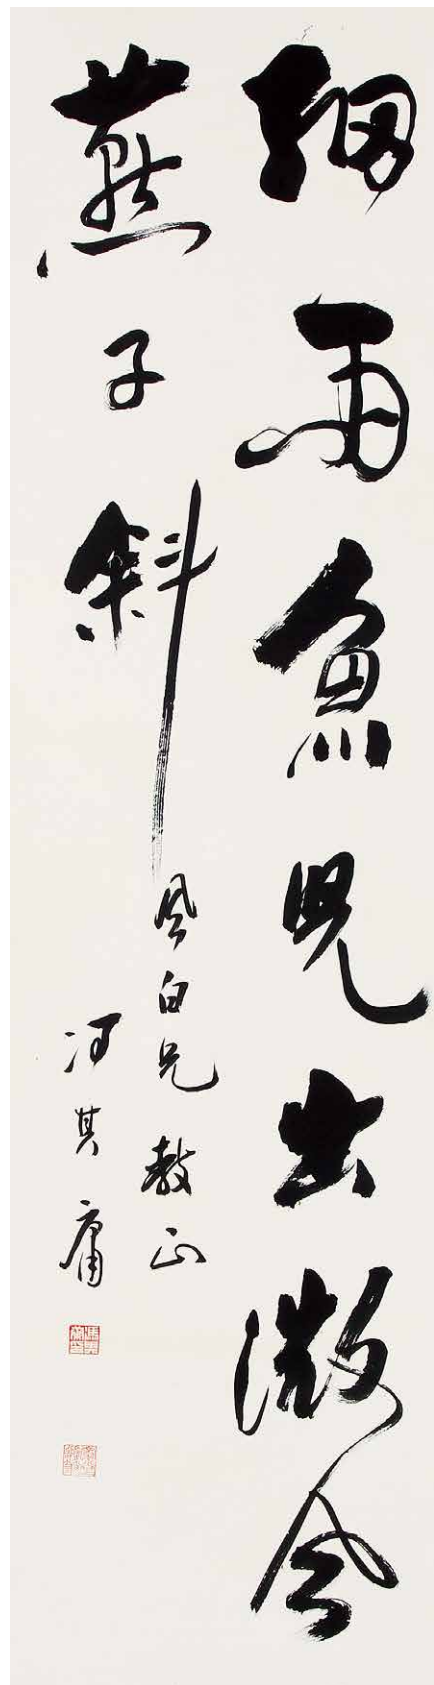 細雨魚兒出微風
燕子斜
風白兄教正
馮其庸